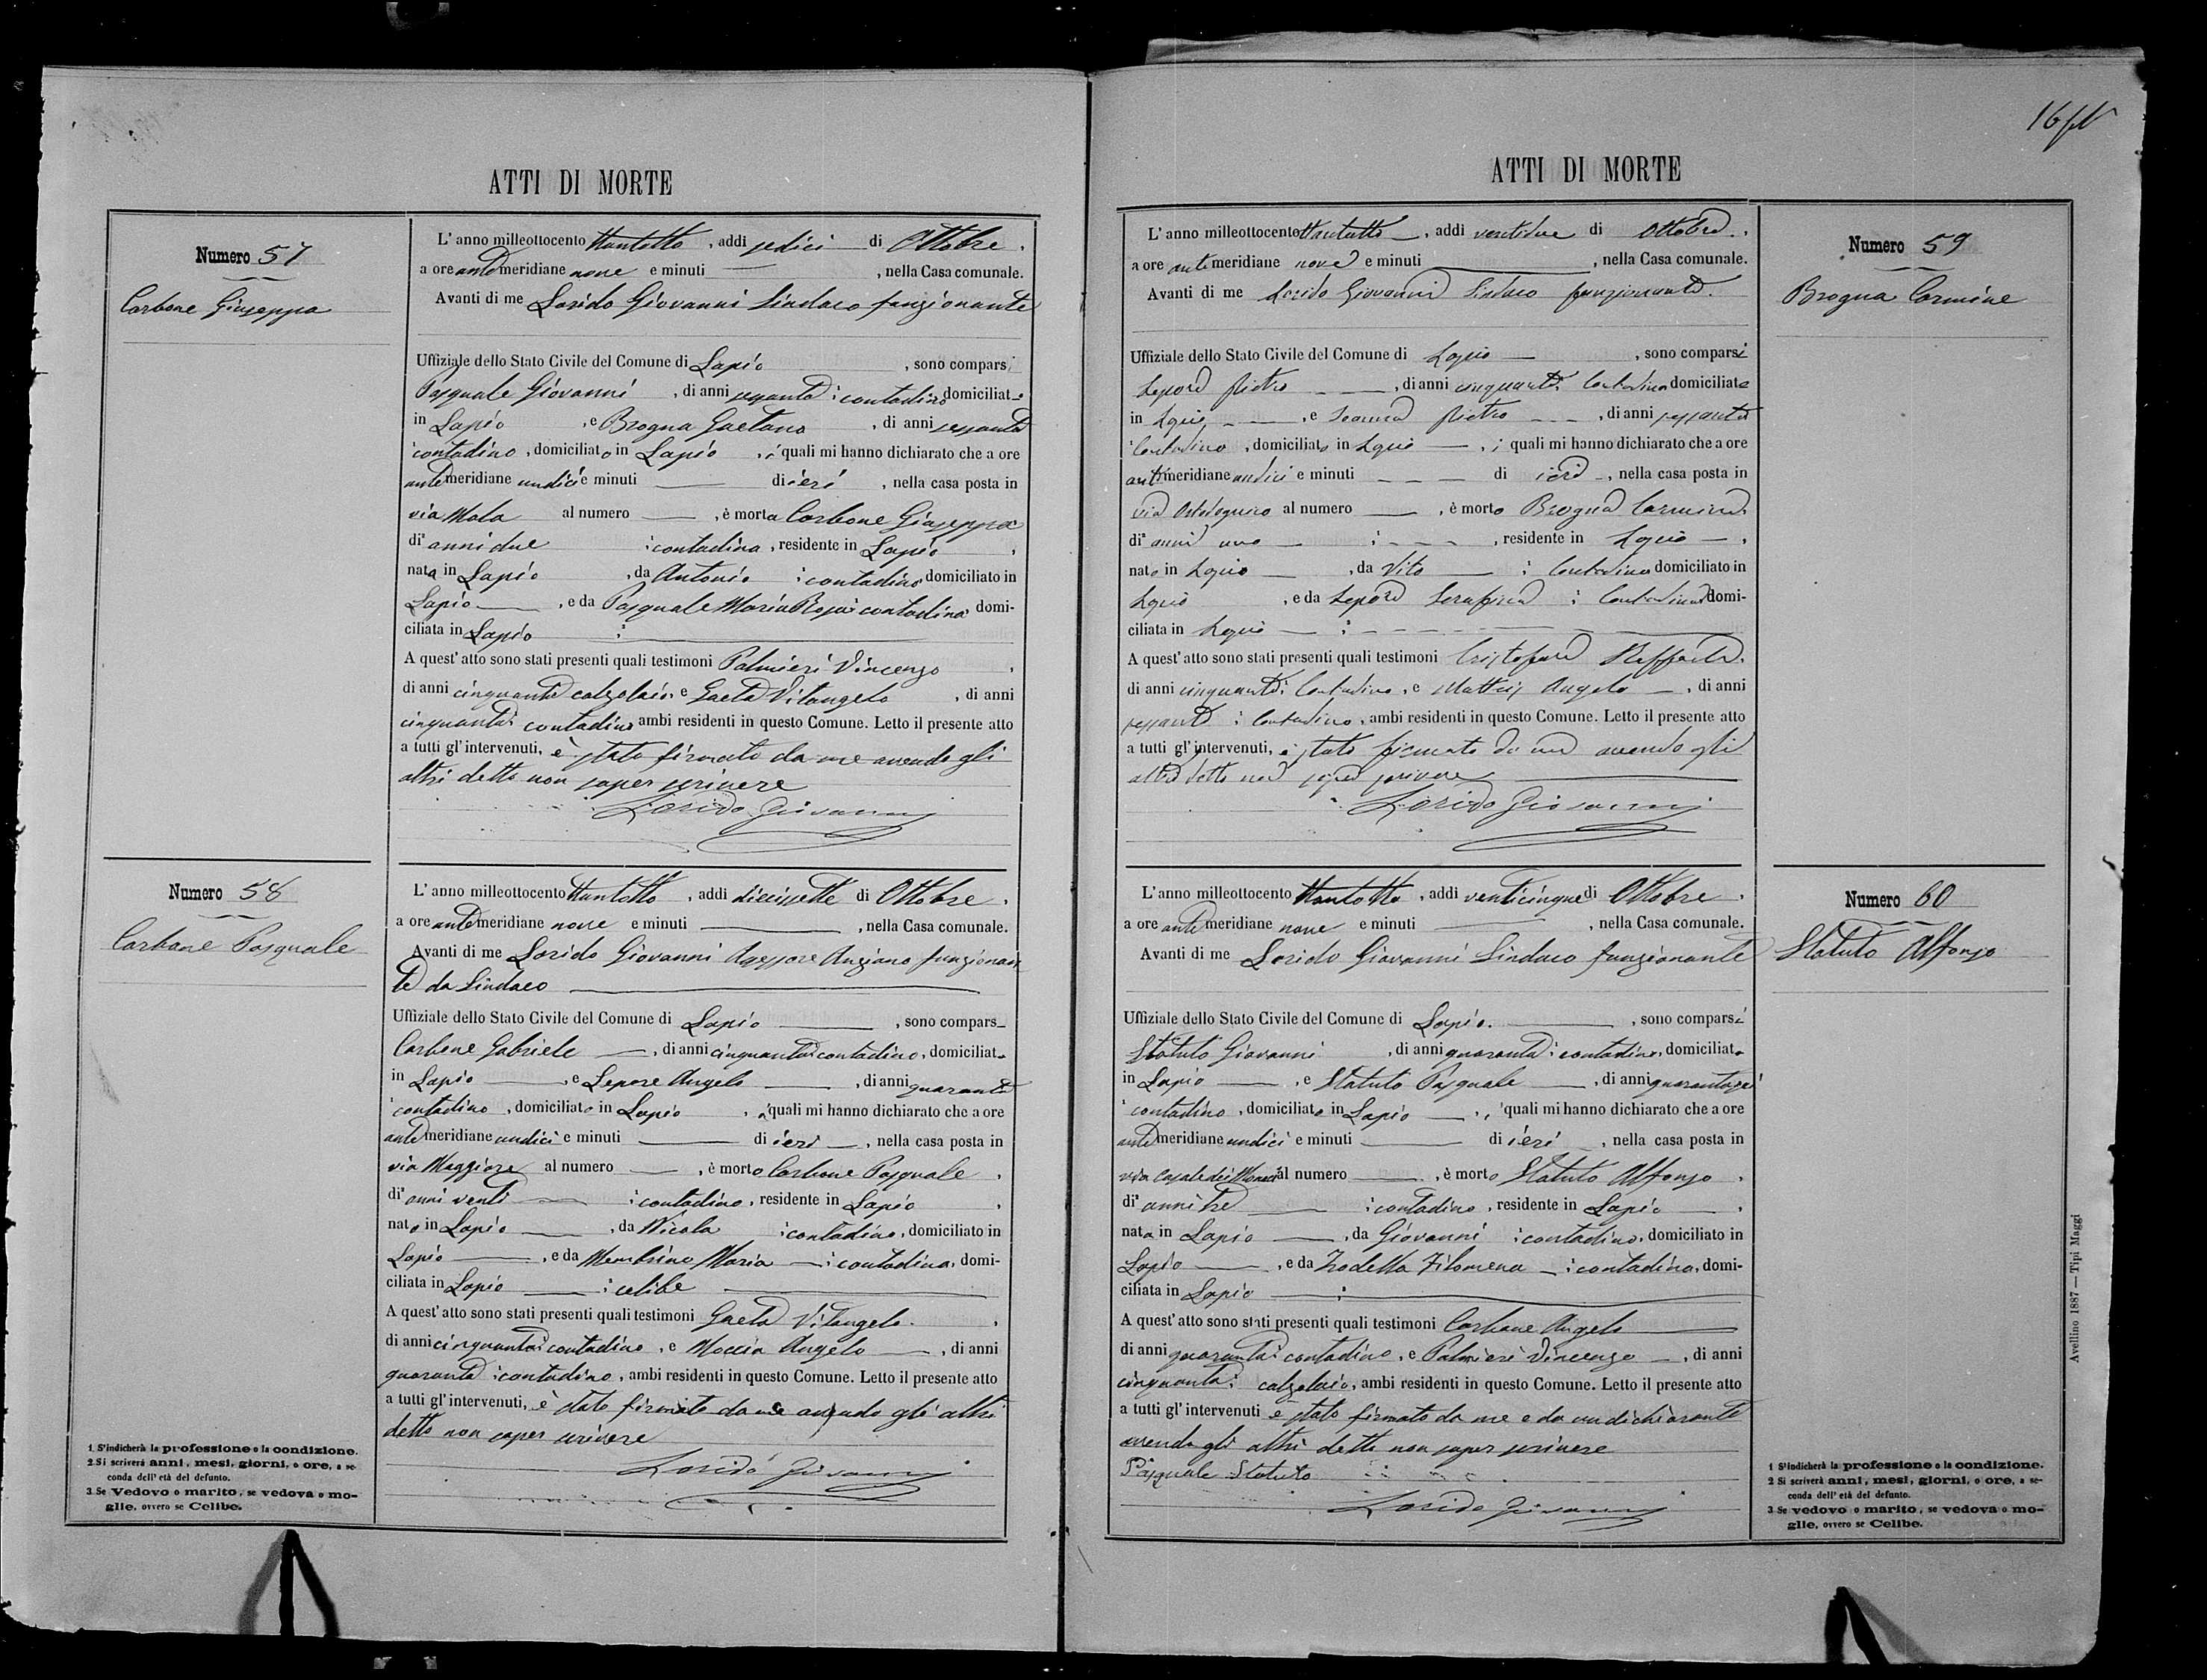 ATTI DI MORTE
Numero 57
Carbone Giuseppa
L' anno milleottocento ttantotto, addì sedici di Ottobre,
a ore antemeridiane nove e minuti —, nella Casa comunale.
Avanti di me Lorido Giovanni Sindaco funzionante
Uffiziale dello Stato Civile del Comune di Lapio, sono compars
Pasquale Giovanni, di anni sessanta; contadino domiciliato
in Lapio, e Brogna Gaetano, di anni sessanta
contadino, domiciliato in Lapio, i quali mi hanno dichiarato che a ore
antemeridiane undici e minuti — di ieri, nella casa posta in
via Mola al numero —, è morta Carbone Giuseppa
di anni due ; contadina, residente in Lapio,
nata in Lapio, da Antonio ; contadino domiciliato in
Lapio —, e da Pasquale Maria Rosa; contadina domi-
ciliata in Lapio ;
A quest' atto sono stati presenti quali testimoni Palmieri Vincenzo,
di anni cinquanta calzolaio, e Gaeta Vitangelo, di anni
cinquanta; contadino ambi residenti in questo Comune. Letto il presente atto
a tutti gl' intervenuti, è stato firmato da me avendo gli
altri detto non saper scrivere
Lorido Giovanni
Numero 58
Carbone Pasquale
L' anno milleottocento ttantotto, addì diecissette di Ottobre,
a ore antemeridiane nove e minuti —, nella Casa comunale.
Avanti di me Lorido Giovanni Assessore Anziano funzionan
te da Sindaco —
Uffiziale dello Stato Civile del Comune di Lapio —, sono compars_
Carbone Gabriele —, di anni cinquanta; contadino, domiciliato
in Lapio —, e Lepore Angelo —, di anni quaranta
; contadino, domiciliato in Lapio, i quali mi hanno dichiarato che a ore
antemeridiane undici e minuti — di ieri —, nella casa posta in
via Maggiore al numero —, è morto Carbone Pasquale,
di anni venti — ; contadino, residente in Lapio,
nato in Lapio —, da Nicola ; contadino, domiciliato in
Lapio —, e da Membrino Maria —; contadina, domi-
ciliata in Lapio — ; celibe —
A quest' atto sono stati presenti quali testimoni Gaeta Vitangelo.,
di anni cinquanta; contadino, e Moccia Angelo —, di anni
quaranta ; contadino, ambi residenti in questo Comune. Letto il presente atto
a tutti gl' intervenuti, è stato firmato da me avendo gli altri
detto non saper scrivere
Lorido Giovanni
1 S'indicherà la professione o la condizione.
2 Si scriverà anni, mesi, giorni, o ore, a se-
conda dell' età del defunto.
3 Se Vedovo o marito, se vedova o mo-
glie, ovvero se Celibe.
ATTI DI MORTE
L' anno milleottocento ttantotto —, addì ventidue di Ottobre.,
a ore antimeridiane nove e minuti —, nella Casa comunale.
Avanti di me Lorido Giovanni Sindaco funzionante.
Numero 59
Brogna Carmine
Uffiziale dello Stato Civile del Comune di Lapio —, sono comparsi
Lepore Pietro — —, di anni cinquanta; Contadino domiciliato
in Lapio — —, e Pietro — —, di anni sessanta
; Contadino, domiciliato in Lapio —, i quali mi hanno dichiarato che a ore
antimeridiane undici e minuti — — — di ieri —, nella casa posta in
via al numero —, è morto Brogna Carmine,
di anni uno — ; — — —, residente in Lapio —,
nato in Lapio —, da Vito — ; Contadino domiciliato in
Lapio, e da Lepore Serafina ; Contadina domi-
ciliata in Lapio — ; — — —
A quest' atto sono stati presenti quali testimoni Cristofaro Raffaele.
di anni cinquanta; Contadino, e Mattis Angelo —, di anni
sessanta ; Contadino, ambi residenti in questo Comune. Letto il presente atto
a tutti gl' intervenuti, è stato firmato da me avendo gli
altri detto non saper scrivere —
Lorido Giovanni
L' anno milleottocento ttantotto, addì venticinque di Ottobre,
a ore antemeridiane nove e minuti —, nella Casa comunale.
Avanti di me Lorido Giovanni Sindaco funzionante
Numero 60
Statuto Alfonso
Uffiziale dello Stato Civile del Comune di Lapio. —, sono comparsi
Statuto Giovanni, di anni quaranta; contadino, domiciliato
in Lapio —, e Statuto Pasquale —, di anni quarantasei
; contadino, domiciliato in Lapio —, i quali mi hanno dichiarato che a ore
antemeridiane undici e minuti — di ieri, nella casa posta in
via Casale dei Monaci al numero —, è morto Statuto Alfonso,
di anni tre — ; contadino, residente in Lapio —,
nato in Lapio —, da Giovanni ; contadino, domiciliato in
Lapio —, e da Filomena —; contadina, domi-
ciliata in Lapio — ;
A quest' atto sono stati presenti quali testimoni Carbone Angelo —
di anni quaranta; contadino, e Palmieri Vincenzo —, di anni
cinquanta; calzolaio, ambi residenti in questo Comune. Letto il presente atto
a tutti gl' intervenuti è stato firmato da me e da un dichiarante
avendo gli altri detto non saper scrivere
Pasquale Statuto
Lorido Giovanni
1 S'indicherà la professione o la condizione.
2 Si scriverà anni, mesi, giorni, o ore, a se-
conda dell' età del defunto.
3 Se vedovo o marito, se vedova o mo-
glie, ovvero se Celibe.
Avellino 1887 — Tipi Maggi